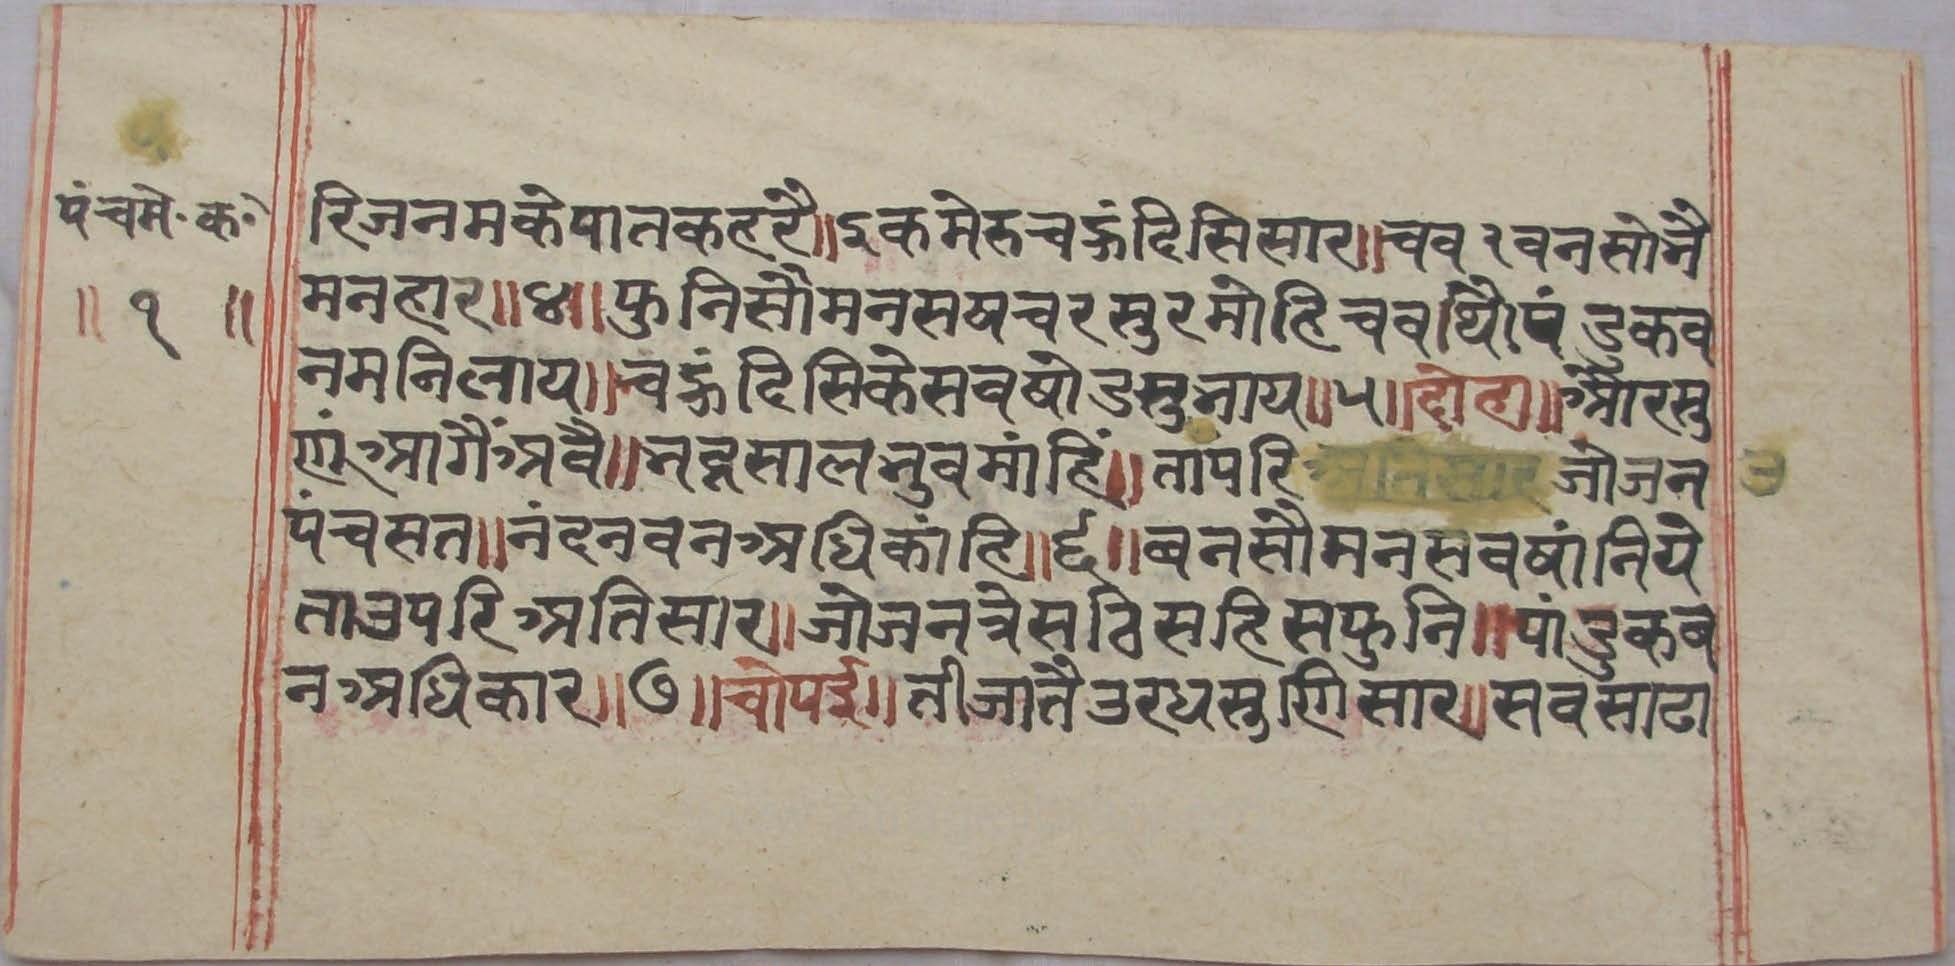 पंचमे॰ क॰
॥ १ ॥
रिजनमकेपातकहरै॥इकमेरुचऊंदिसिसार॥चव२वनसोनै
मनहार॥४॥फुनिसौमनसयचरसुरमोहिचवथिोपंडुकव
नमनिलाय॥चऊंदिसिकेसवषोडसुनाय॥५॥दोहा॥औरसु
आगैंअवै॥नद्रसालनुवमांहिं॥तापरि जोजन
पंचसत॥नंदनवनअधिकांहि॥६॥बनसौमनसवषांनिये
ताउपरिअतिसार॥जोजनत्रेसठिसहिसफुनि॥पांडुकव
नअधिकार॥७॥चोपई॥तीजातैउरधसुगिसार॥सवसाढा